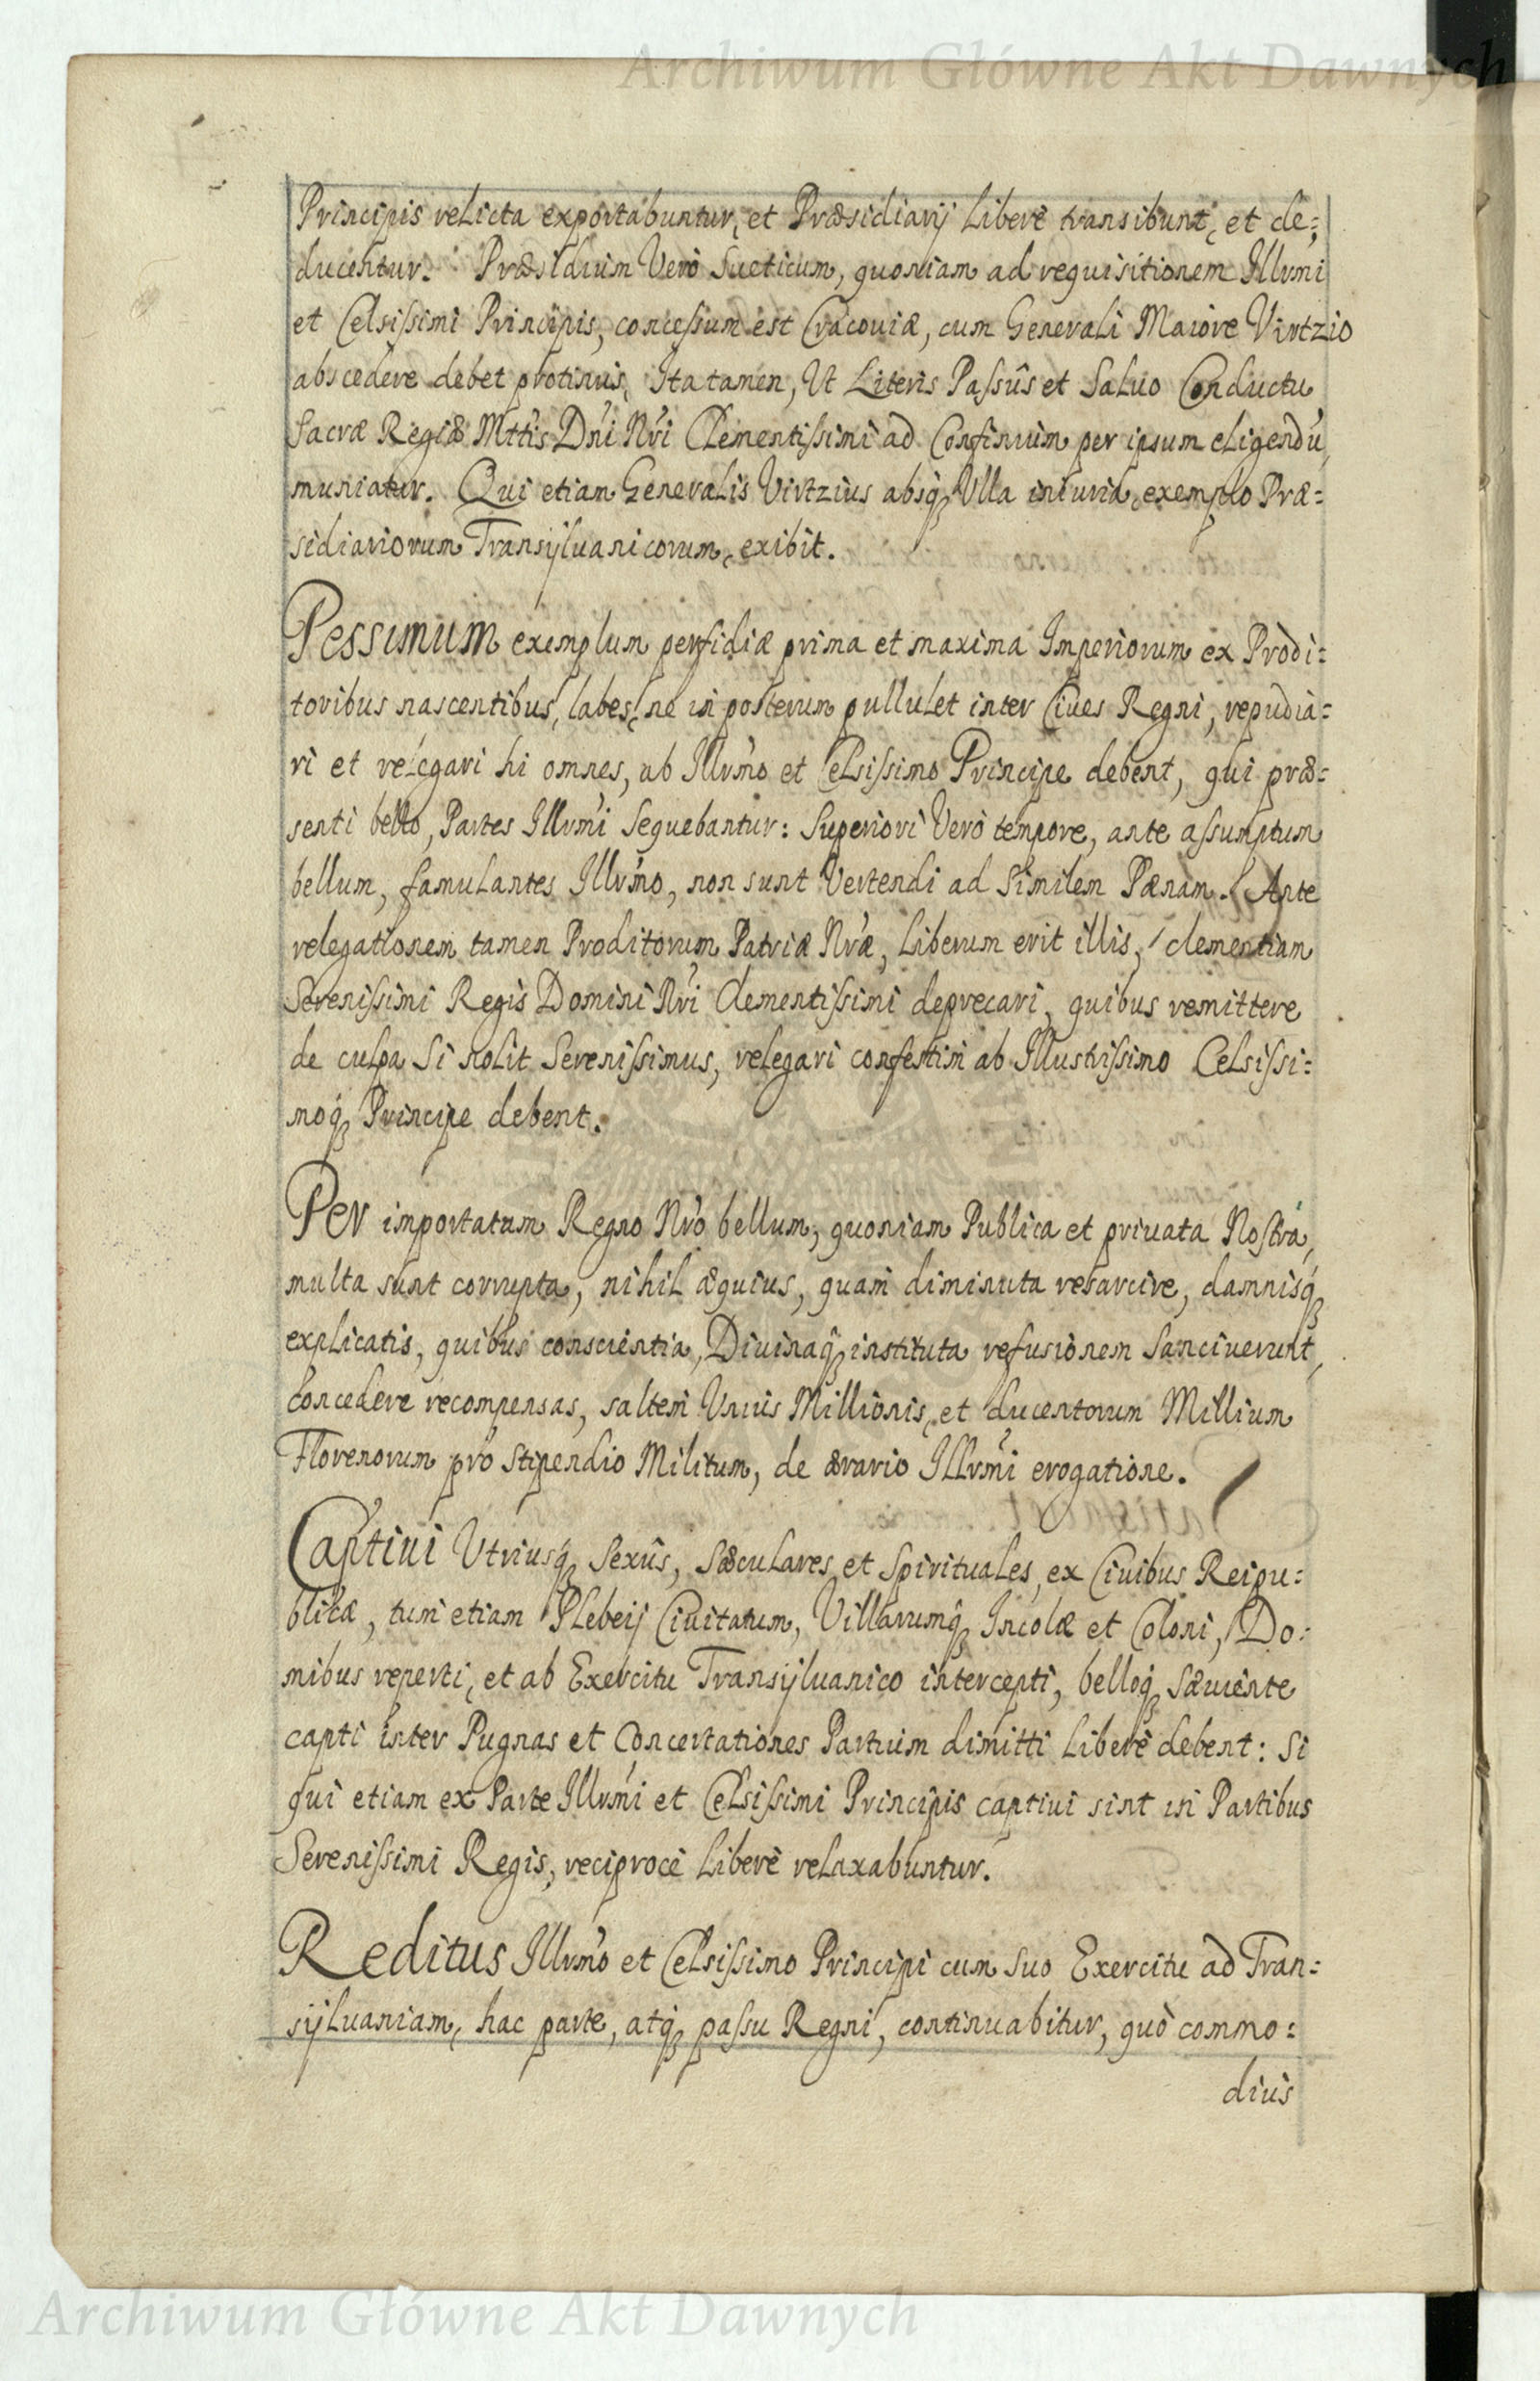 Archiwum Główne Akt Dawnych
Principis relicta exportabuntur, et Præsidiarij liberè transibunt, et de=
ducentur. Præsidium Verò Sueticum, quoniam ad requisitionem Illrmi
et Celsissimi Principis, concessum est Cracouiæ, cum Generali Maiore Virtzio
abscedere debet protinus, Ita tamen, Ut Literis Passûs et Saluo Conductu
Sacræ Regiæ Mttis Dni Nri Clementissimi ad Confinium per ipsum eligendũ,
muniatur. Qui etiam Generalis Virtzius absq Ulla iniuria, exemplo Præ=
sidiariorum Transijluanicorum, exibit.
Pessimum exemplum perfidiæ prima et maxima Imperiorum ex Prodi=
toribus nascentibus, labes, ne in posterum pullulet inter Ciues Regni, repudia=
ri et relegari hi omnes, ab Illrmo et Celsissimo Principe debent, qui præ=
senti bello, Partes Illrmi Sequebantur: Superiori Verò tempore, ante assumptum
bellum, famulantes Illrmo, non sunt Vertendi ad Similem Pænam. Ante
relegationem tamen Proditorum Patriæ Nræ, Liberum erit illis, clementiam
Serenissimi Regis Domini Nri Clementissimi deprecari, quibus remittere
de culpa Si nolit Serenissimus, relegari confestim ab Illustrissimo Celsissi=
moq Principe debent.
Per importatum Regno Nro bellum, quoniam Publica et priuata Nostra,
multa sunt corrupta, nihil æquius, quam diminuta resarcire, damnisq
explicatis, quibus conscientia, Diuinaq instituta refusionem Sanciuerunt,
Concedere recompensas, saltem Unius Millionis, et ducentorum Millium
Florenorum pro Stipendio Militum, de ærario Illrmi erogatione.
Captiui Utriusq Sexûs, Sæculares et Spirituales, ex Ciuibus Reipu=
blicæ, tum etiam Plebeij Ciuitatum, Villarumq Incolæ et Coloni, Do=
mibus reperti, et ab Exercitu Transijluanico intercepti, belloq Sæuiente
capti inter Pugnas et Concertationes Partium dimitti Liberè debent: Si
qui etiam ex Parte Illrmi et Celsissimi Principis captiui sint in Partibus
Serenissimi Regis, reciprocè Liberè relaxabuntur.
Reditus Illrmo et Celsissimo Principi cum Suo Exercitu ad Tran=
sijluaniam, hac parte, atq passu Regni, continuabitur, quò commo=
dius
Archiwum Główne Akt Dawnych